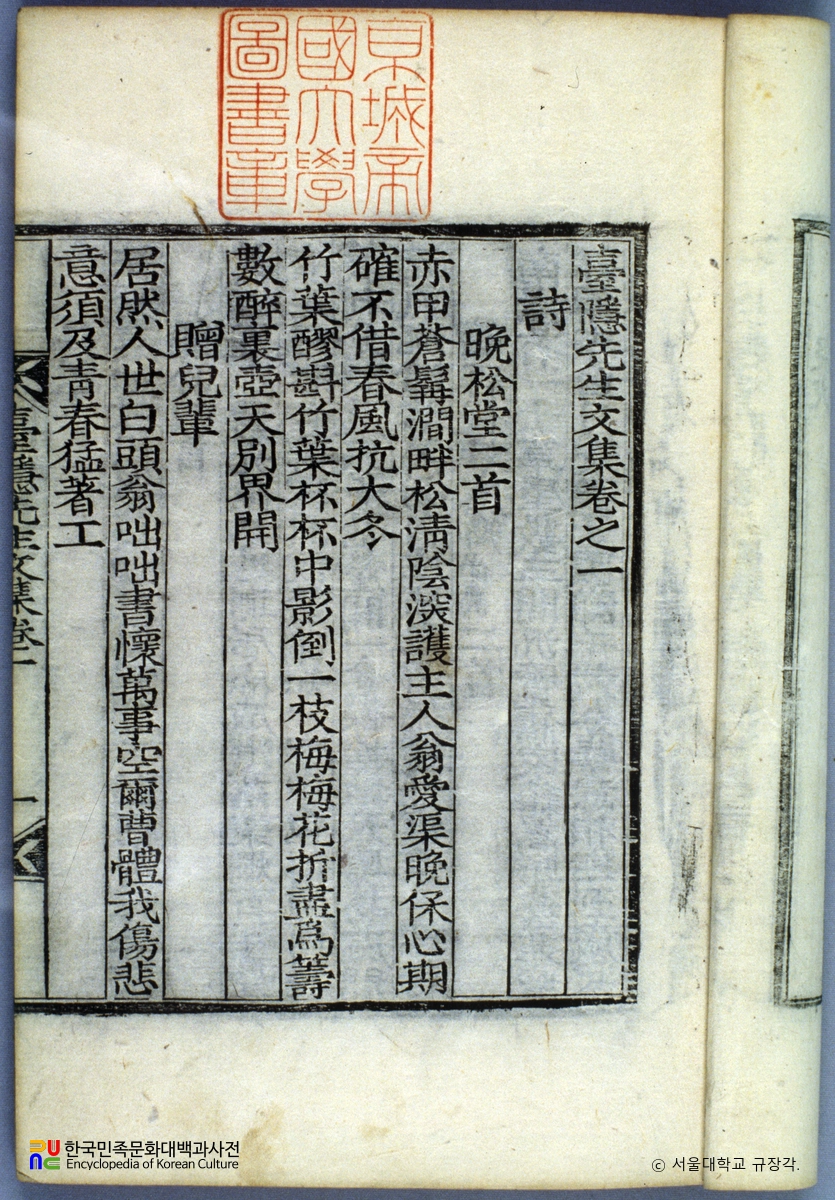 京城帝
國大學
圖書章
臺隱先生文集卷之一
詩
晚松堂二首
赤甲蒼髯澗畔松淸陰深護主人翁愛渠晚保心期
確不借春風抗大冬
竹葉醪斟竹葉杯杯中影倒一枝梅梅花折盡爲籌
數醉裏壺天別界開
贈兒輩
居然人世白頭翁咄咄書懷萬事空爾曹體我傷悲
意須及靑春猛著工
臺隱先生文集卷一
一
한국민족문화대백과사전
Encyclopedia of Korean Culture
© 서울대학교 규장각.